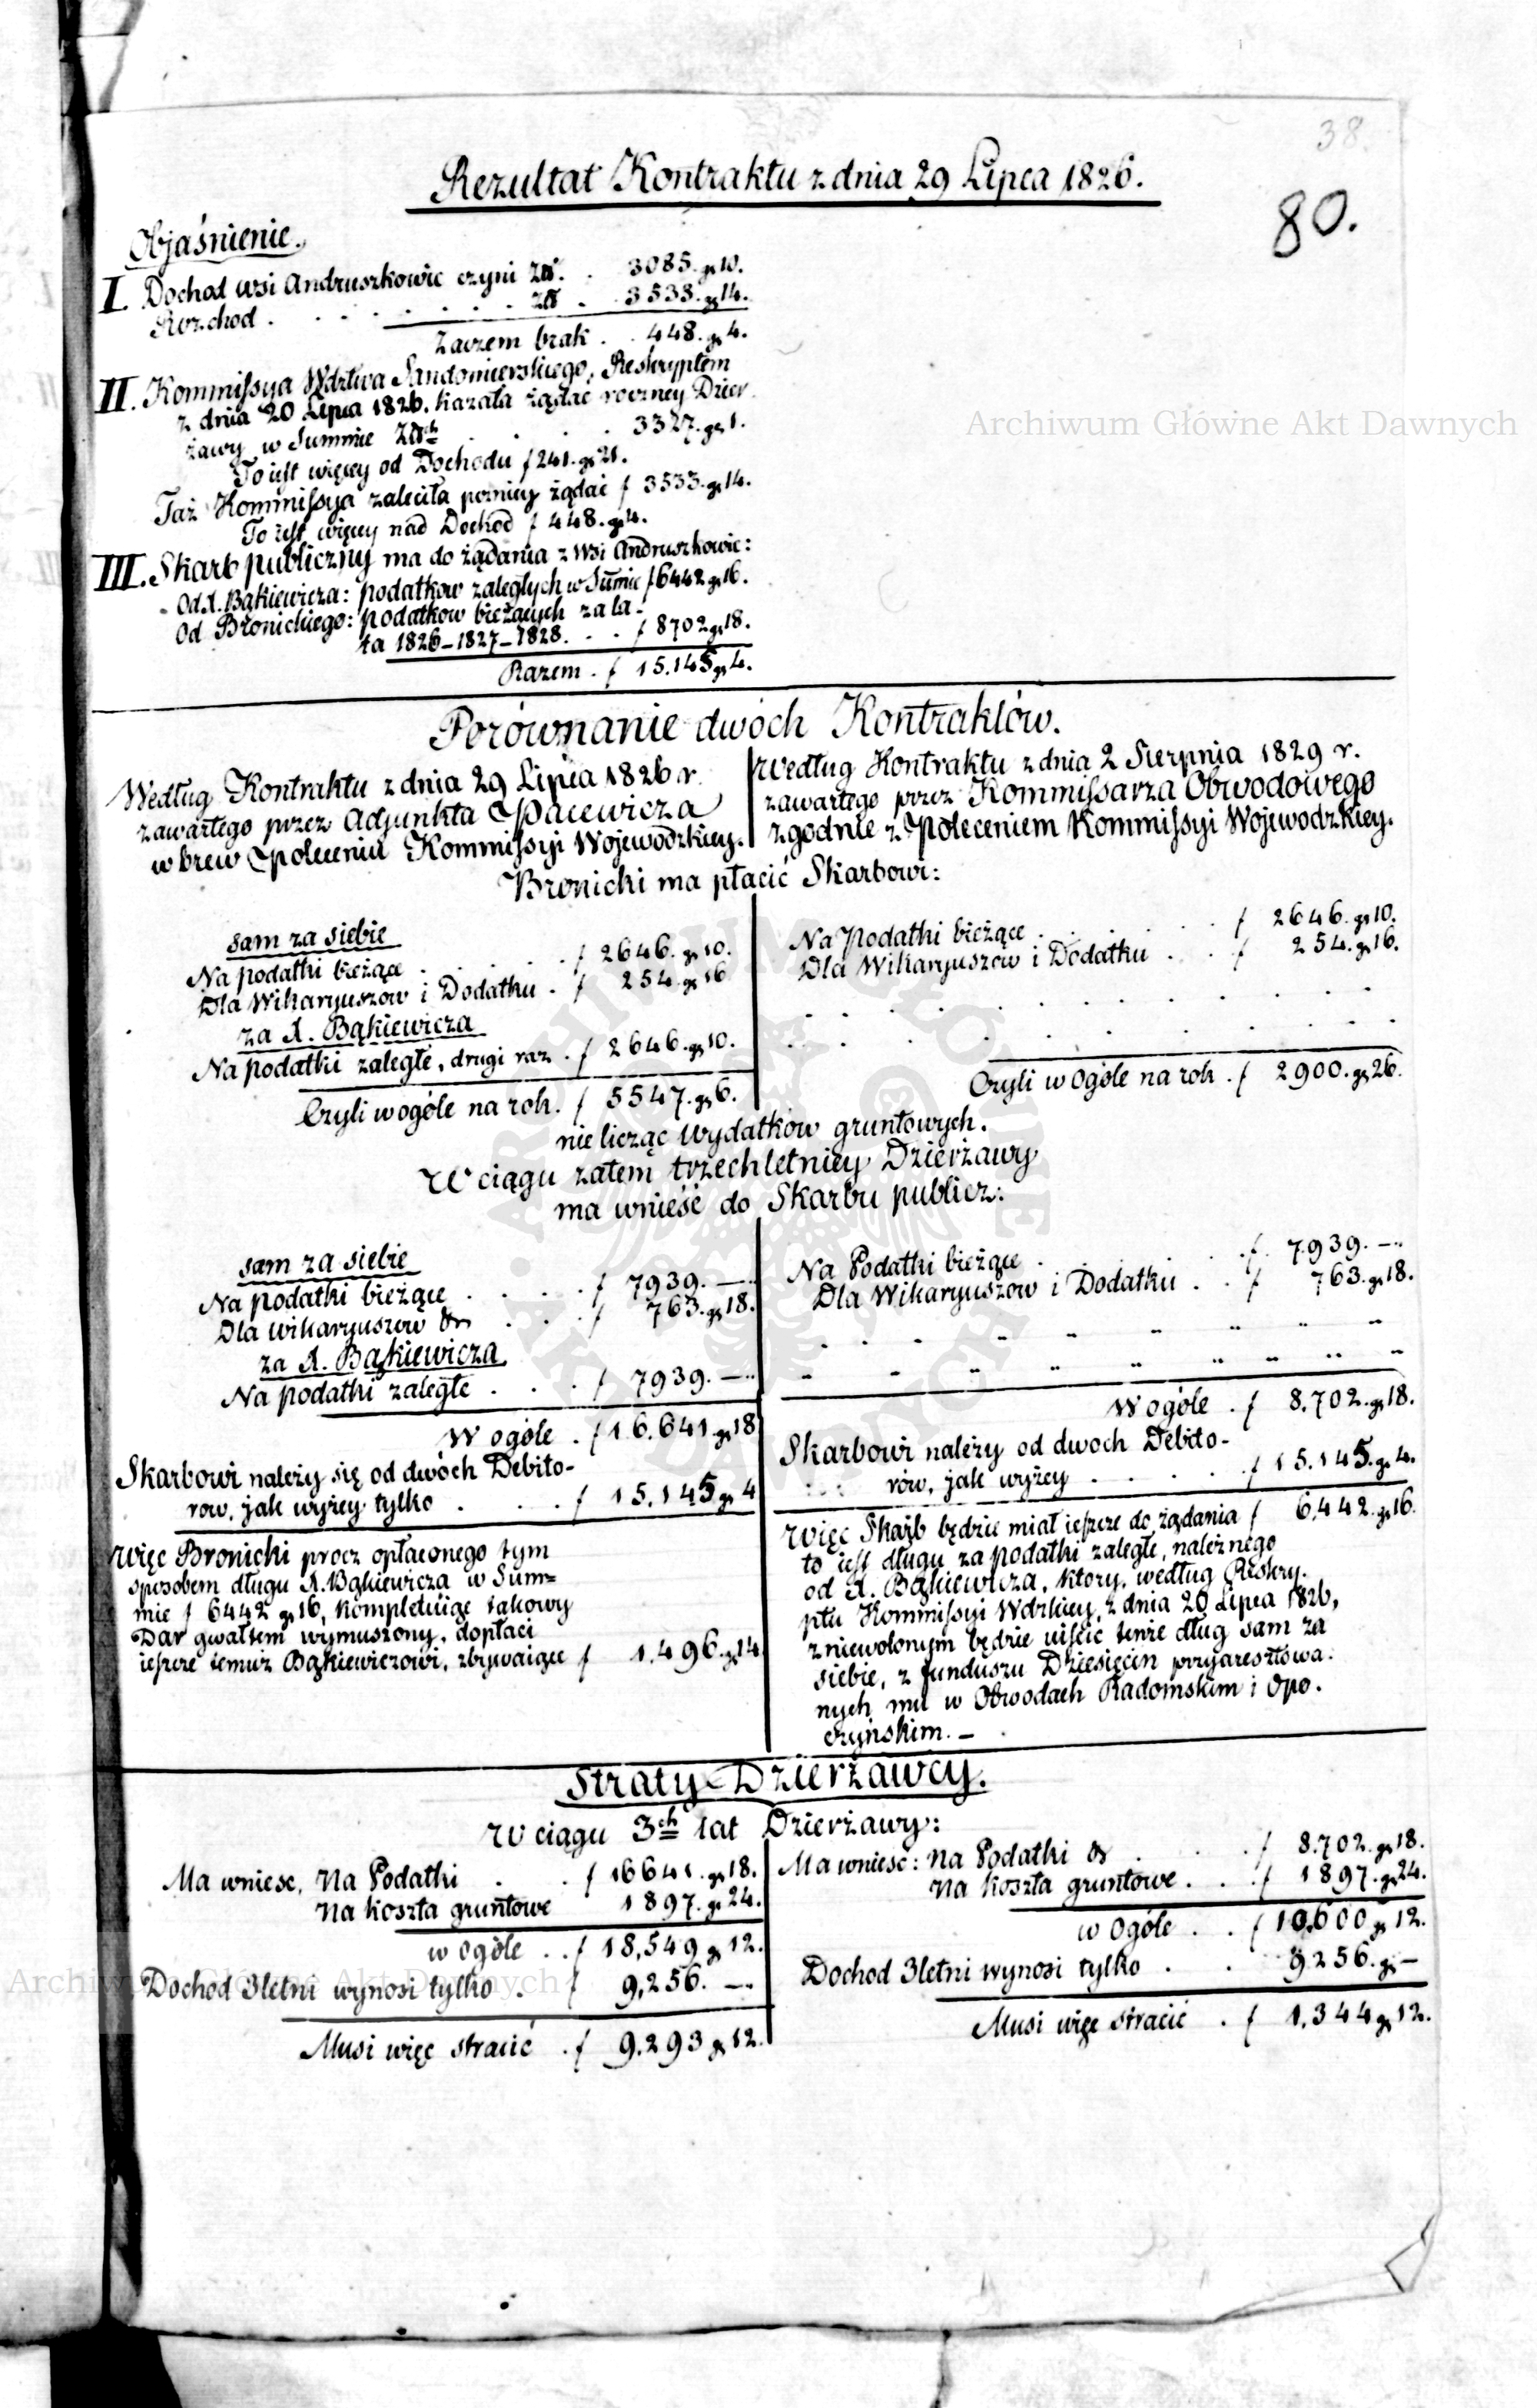 38.
80.
Rezultat Kontraktu z dnia 29 Lipca 1826.
Objaśnienie.
I. Dochod wsi Andruszkowic czyni Złł. . 3085. gr 10.
Rozchod . . . . . . . Złł . 3533. gr 14.
Zaczem brak . . 448. gr 4.
II. Kommissya Wdztwa Sandomierskiego, Reskryptem
z dnia 20 Lipca 1826. kazała żądać roczney Dzier
żawy w Summie Złłch . . . . 3327. gr 1.
To iest więcey od Dochodu f 241. gr 21.
Taż Kommissya zaleciła pozniey żądać f 3533. gr 14.
To iest więcey nad Dochod f 448. gr 4.
III. Skarb publiczny ma do żądania z Wsi Andruszkowic:
Od X. Bąkiewicza: podatkow zaległych w Summie f 6442 gr 16.
Od Bronickiego: podatkow bieżących za la-
ta 1826–1827–1828. . . f 8702 gr 18.
Razem . f 15.145 gr 4.
Porównanie dwóch Kontraktów.
Według Kontraktu z dnia 29 Lipca 1826 r.
zawartego przez Adjunkta Pacewicza
w brew Poleceniu Kommissyi Wojewodzkiey.
Według Kontraktu z dnia 2 Sierpnia 1829 r.
zawartego przez Kommissarza Obwodowego
zgodnie z Poleceniem Kommissyi Wojewodzkiey.
Bronicki ma płacić Skarbowi:
sam za siebie
Na podatki bieżące . . . . f 2646. gr 10.
Dla Wikaryuszow i Dodatku . f 254. gr 16
za X. Bąkiewicza
Na podatki zaległe, drugi raz . f 2646. gr 10.
Czyli w ogóle na rok . f 5547. gr 6.
Na Podatki bieżące . . . . . f 2646. gr 10.
Dla Wikaryuszow i Dodatku . . f 254. gr 16.
Czyli w Ogóle na rok . f 2900. gr 26.
nie licząc wydatkow gruntowych.
W ciągu zatem trzechletniey Dzierżawy
ma wnieść do Skarbu publicz:
sam za siebie
Na podatki bieżące . . . . f 7939. —
Dla wikaryuszow &c . . . f 763. gr 18.
za X. Bąkiewicza
Na podatki zaległe . . . f 7939. —
W ogóle . f 16.641 gr 18
Skarbowi należy się od dwóch Debito-
row, jak wyżey tylko . . . f 15.145 gr 4
Więc Bronicki procz opłaconego tym
sposobem długu X. Bąkiewicza w Sum=
mie f 6442 gr 16, kompletuiąc takowy
Dar gwałtem wymuszony, dopłaci
ieszcze temuż Bąkiewiczowi, zbywaiące f 1.496. gr 14
Na Podatki bieżące . . . . . f. 7.939. —
Dla Wikaryuszow i Dodatku . . f 763. gr 18.
W ogóle . f 8.702. gr 18.
Skarbowi należy od dwoch Debito-
row, jak wyżey . . . . . f 15.145. gr 4.
Więc Skarb będzie miał ieszcze do żądania f 6.442. gr 16.
to iest długu za podatki zaległe, należnego
od X. Bąkiewicza, ktory, według Reskry.
ptu Kommissyi Wdzkiey, z dnia 20 Lipca 1826,
zniewolonym będzie uiścić tenże dług sam za
siebie, z funduszu Dziesięcin przyaresztowa.
nych mu w Obwodach Radomskim i Opo.
czyńskim. —
Straty Dzierżawcy.
W ciągu 3ch lat Dzierżawy:
Ma wniesc, Na Podatki . . f 16641. gr 18.
Na koszta gruntowe 1897. gr 24.
w ogóle . . f 18,549 gr 12.
Dochod 3letni wynosi tylko . f 9,256. —
Musi więc stracić . f 9.293 gr 12.
Ma wniesć: Na Podatki &c . . . f 8.702. gr 18.
Na koszta gruntowe . . . f 1897. gr 24.
w Ogóle . . f 10,600 gr 12.
Dochod 3letni wynosi tylko . . 9256. gr —
Musi więc stracić . f 1.344 gr 12.
Archiwum Główne Akt Dawnych
Archiwum Główne Akt Dawnych
ARCHIWUM GŁÓWNE AKT DAWNYCH